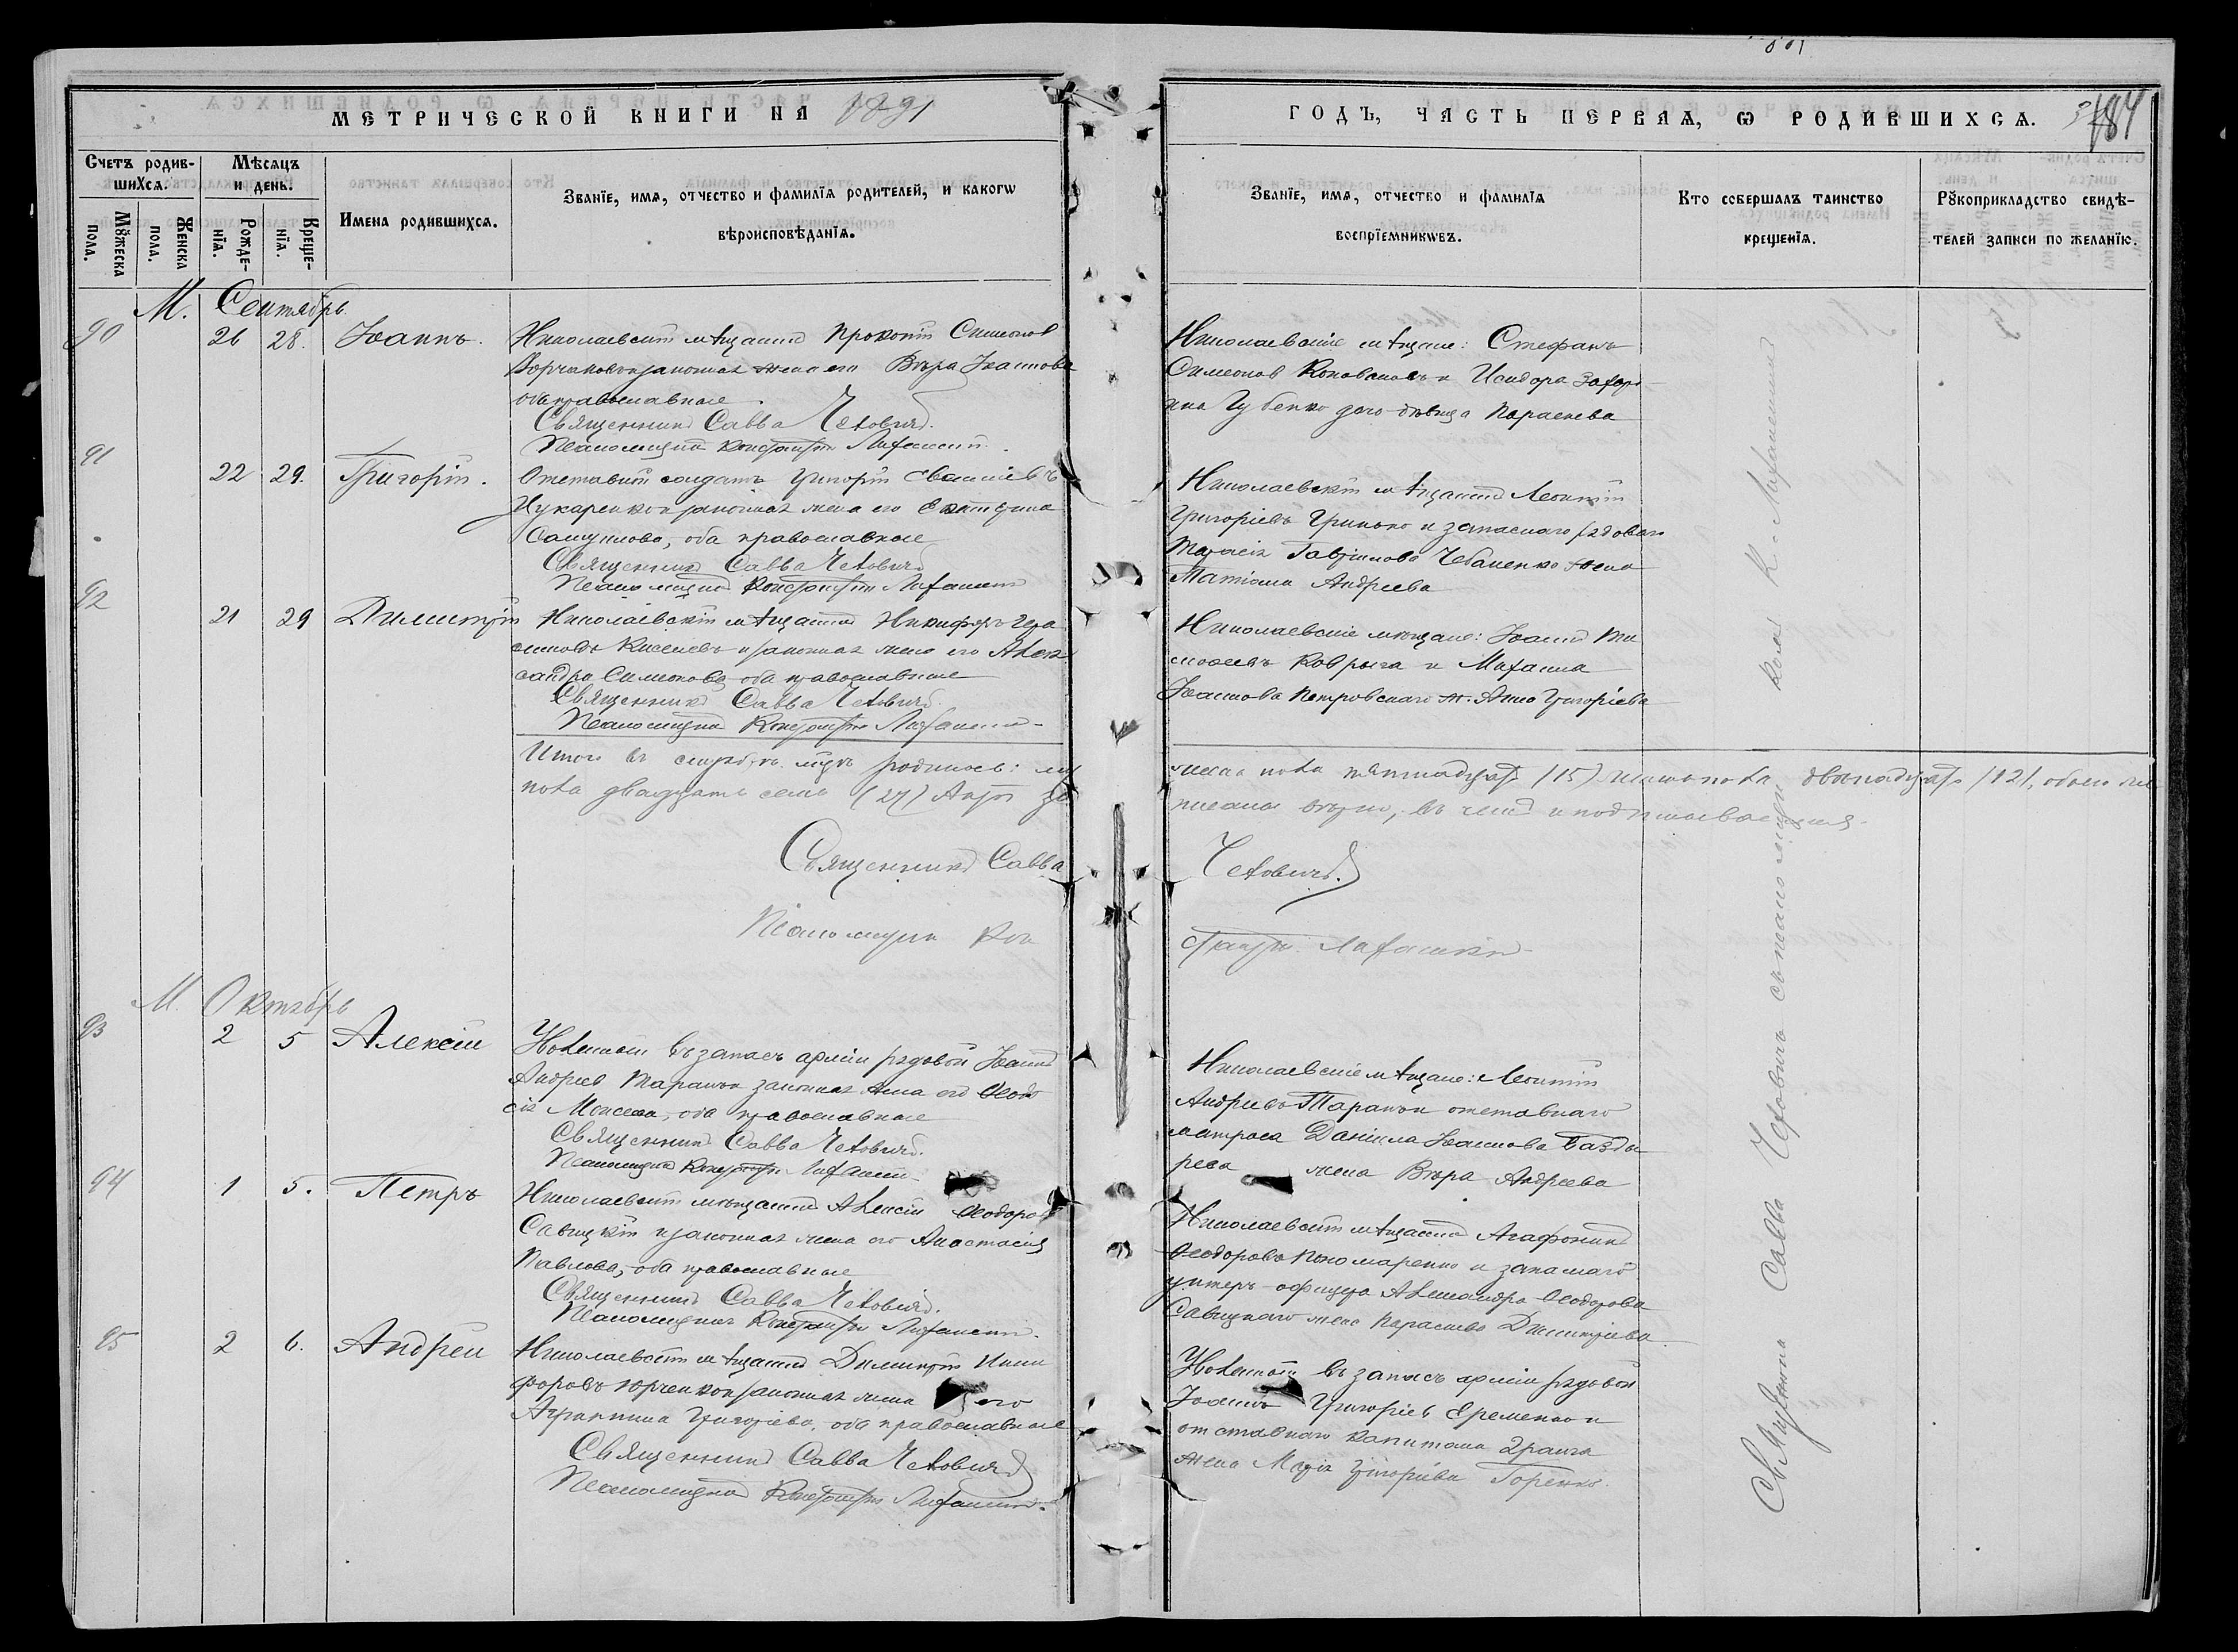 МЕТРИЧЕСКОЙ КНИГИ НА 1891
ГОДЪ, ЧАСТЬ ПЕРВАЯ, Ѡ РОДИВШИХСЯ.
184
Счетъ родив-
шихся.
Мѣсяцъ
и день.
Мꙋжеска
пола.
Женска
пола.
Рожде-
нїя.
Креще-
нїя.
Имена родившихся.
Званїе, имя, отчество и фамилїя родителей, и какогѡ
вѣроисповѣданїя.
Званїе, имя, отчество и фамилїя
воспрїемникѡвъ.
Кто совершалъ таинство
крещенїя.
Рꙋкоприкладство свидѣ-
телей записи по желанїю.
М. Сентябрь
90 26 28. Іоаннъ.
Николаевскій мѣщанинъ Прокопій Симеонов
законная жена его Вѣра Іоаннова
оба православные
Священникъ Савва Чехович.
Псаломщикъ Константин
Николаевскіе мѣщане: Стефанъ
Симеонов и Исидора Захар
ина Губенко дочь девица Параскева
91 22 29. Григорій.
Отставной солдатъ Григорій
законная жена его Екатерина
Самуилова, оба православные
Священникъ Савва Чехович
Псаломщикъ Константин
Николаевскій мѣщанинъ Леонтій
Григоріевъ Гринько и запаснаго рядоваго
Гавріилова Чебаненко жена
Татіана Андреева
92 21 29 Димитрій
Николаевскій мѣщанинъ Никифоръ Гера
симовъ Киселевъ и законная жена его Алек
сандра Симеонова оба православные
Священникъ Савва Чехович.
Псаломщикъ Константин
Николаевскіе мѣщане: Іоаннъ Ти
моѳеевъ Коврыга и Михаила
Іоаннова Петровскаго ж. Анна Григоріева
Итого въ сентябрѣ мѣсяцѣ родилось: му
жеска пола пятнадцать (15) женска пола двѣнадцать (12), обоего
пола двадцать семь (27)
писана вѣрно, въ чемъ и подписываемся.
Священникъ Савва
Чехович.
Псаломщикъ Кон
стантин
М. Октябрь
93 2 5 Алексій
Уволенный въ запасъ арміи рядовой Іоаннъ
Андреев Таран и законная жена его Ѳеодо
сія Моисеева, оба православные
Священникъ Савва Чехович.
Псаломщикъ Константин
Николаевскіе мѣщане: Леонтій
Андреевъ Таран и отставнаго
матроса Даніила Іоаннова
жена Вѣра Андреева
94 1 5. Петръ
Николаевскій мѣщанинъ Алексій Ѳеодоров
Савицкій и законная жена его Анастасія
Павлова, оба православные
Священникъ Савва Чехович.
Псаломщикъ Константин
Николаевскій мѣщанинъ Агафоникъ
Ѳеодоровъ Пономаренко и запаснаго
унтеръ-офицера Александра Ѳеодорова
Савицкаго жена Параскева Димитріева
95 2 6. Андрей
Николаевскій мѣщанинъ Димитрій Ники
форовъ Юрченко и законная жена его
Агриппина Григорьева, оба православные
Священникъ Савва Чехович
Псаломщикъ Константин
Уволенный въ запасъ арміи рядовой
Іоаннъ Григоріев Еременко и
отставнаго капитана 2 ранга
жена Марія Григоріева Горенко.
Священникъ Савва Чехович съ псаломщикомъ